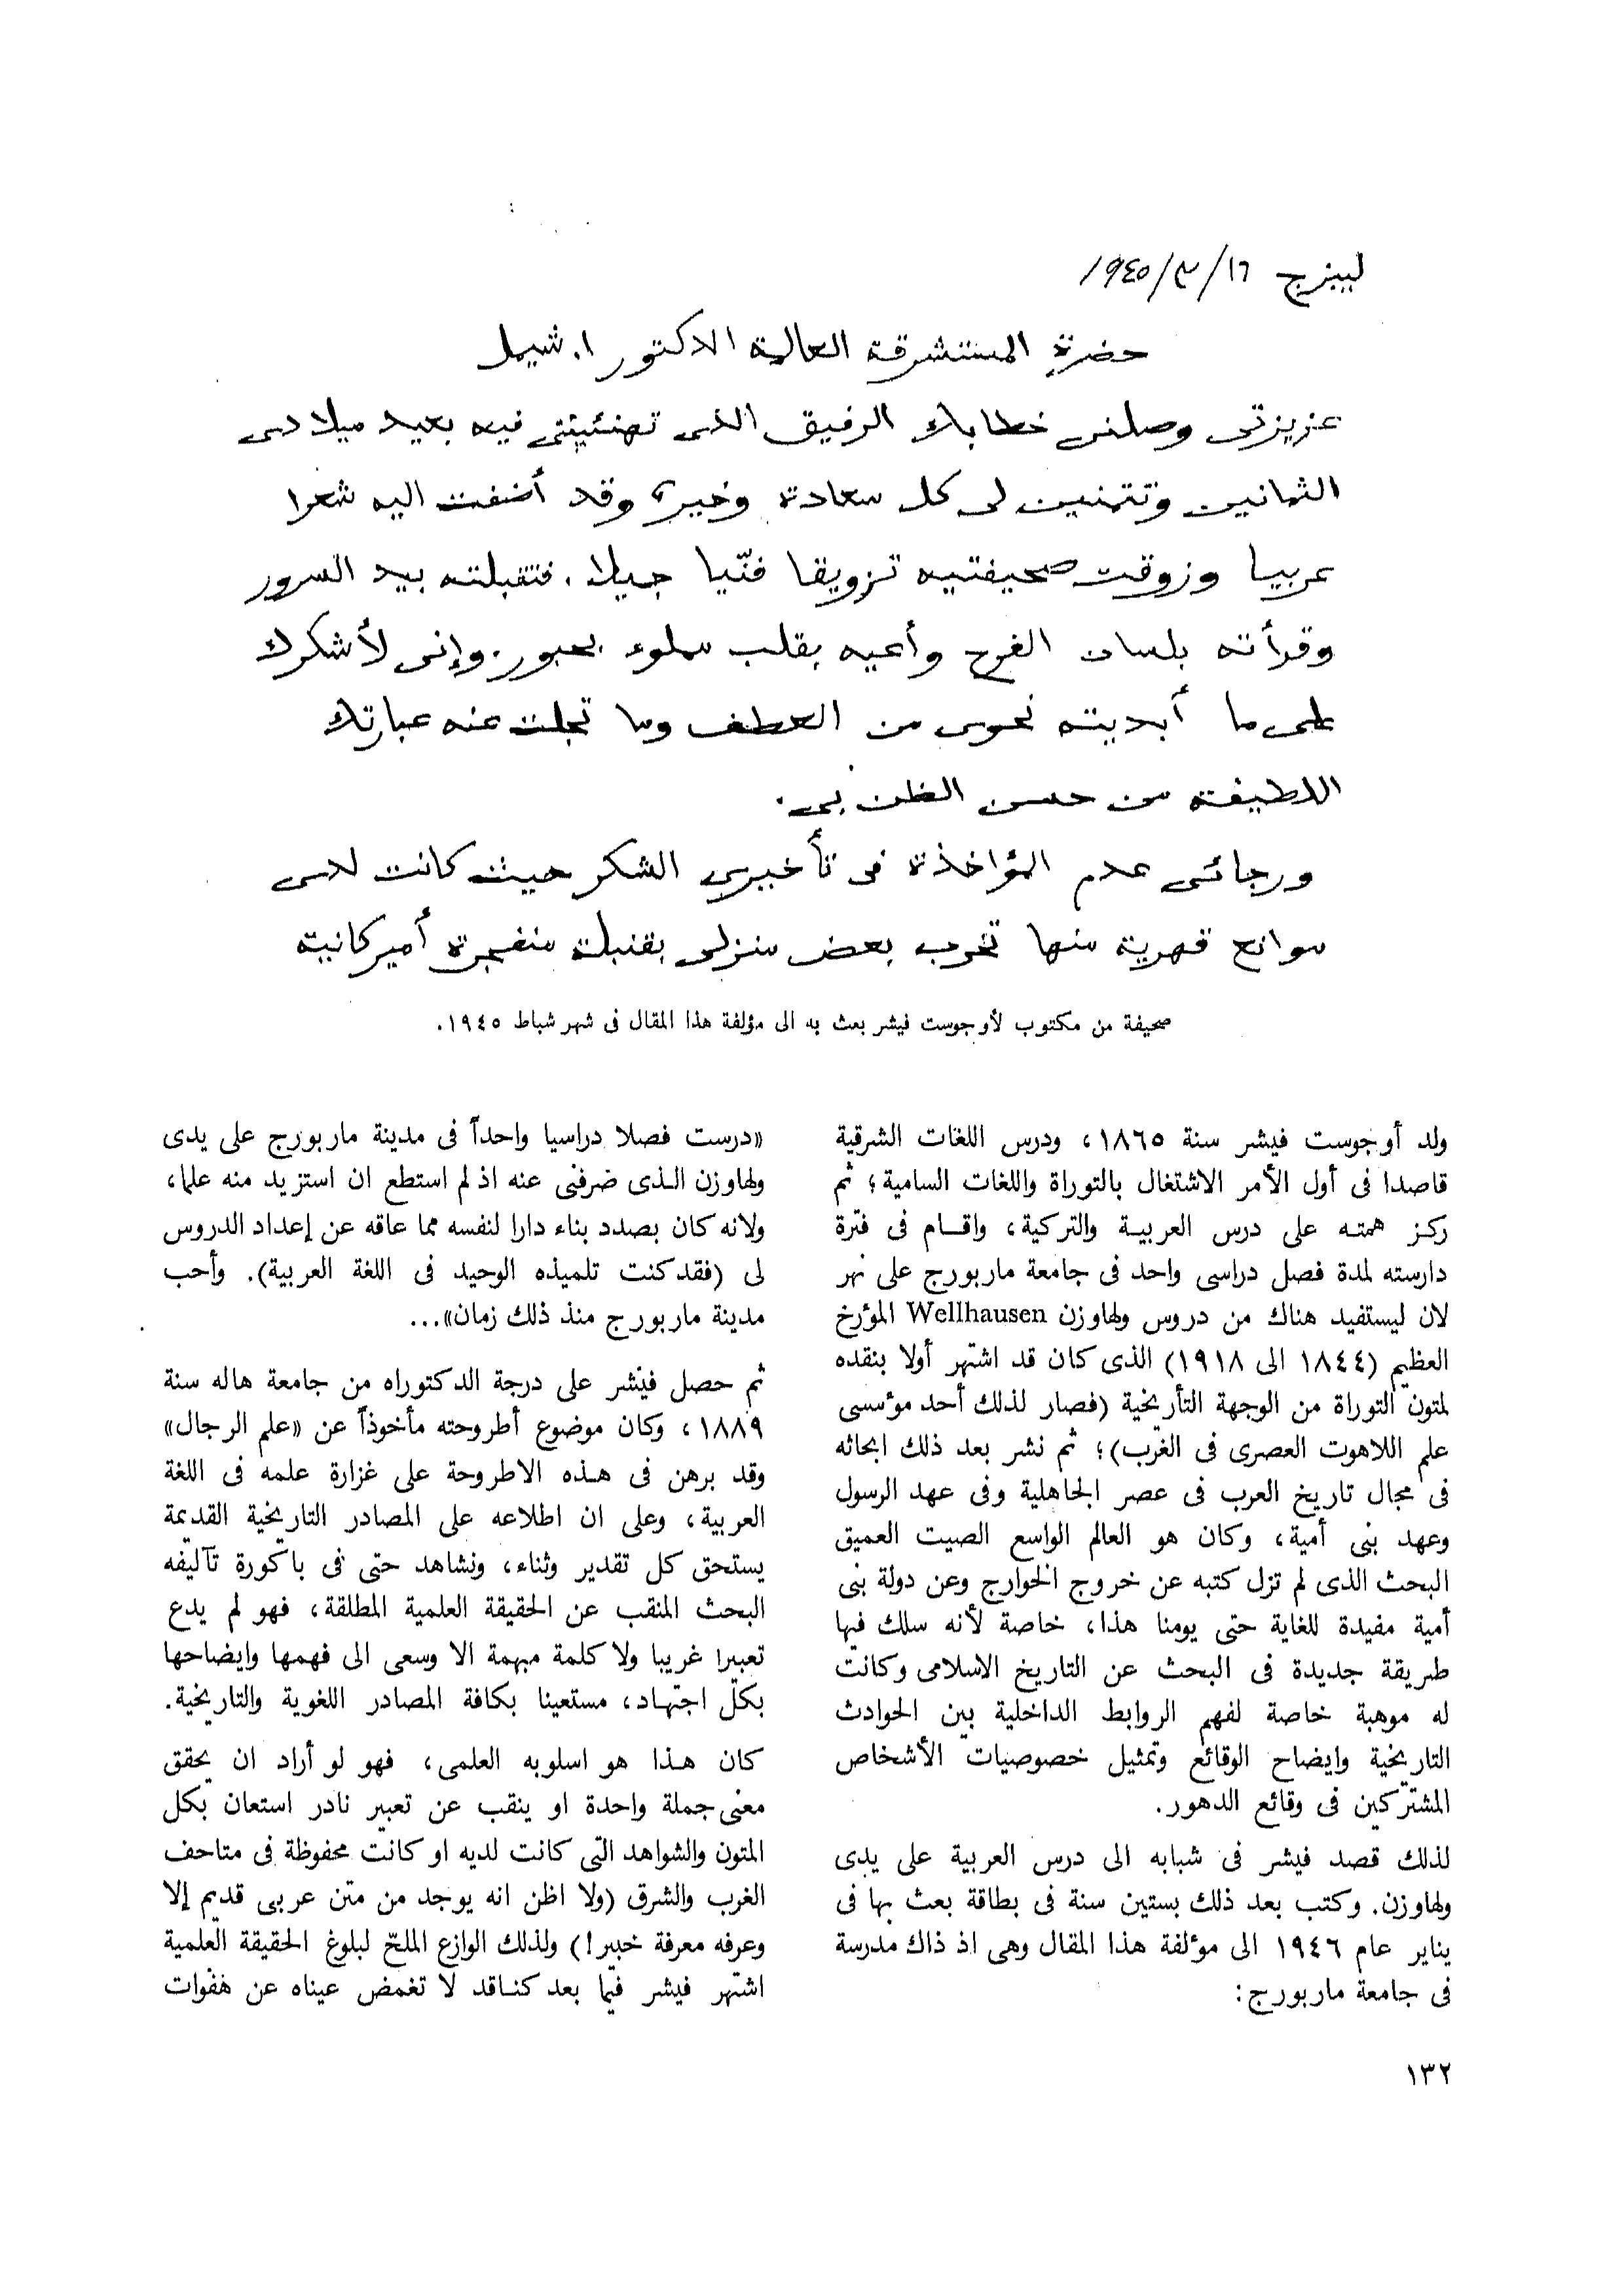 ليبزج ١٦/٣/١٩٤٥
حضرة المستشرقة العالمة الدكتور ا. شيمل
عزيزتى وصلنى خطابك الرقيق الذى تهنئينى فيه بعيد ميلادى
الثمانين وتتمنين لى كل سعادة وخير، وقد أضفت اليه شعرا
عربيا وزوقت صحيفتيه تزويقا فنّيا جميلا. فتقبلته بيد السرور
وقرأته بلسان الفرح وأعيه بقلب مملوء بحبور. وإنى لأشكرك
على ما أبديته نحوى من العطف وما تجلت عنه عبارتك
اللطيفة من حسن الظن بى.
ورجائى عدم المؤاخذة فى تأخيرى الشكر حيث كانت لدى
موانع قهرية منها تخرب بعض منزلى بقنبلة منفجرة أميركانية
صحيفة من مكتوب لأوجوست فيشر بعث به الى مؤلفة هذا المقال فى شهر شباط ١٩٤٥.
ولد أوجوست فيشر سنة ١٨٦٥، ودرس اللغات الشرقية
قاصدا فى أول الأمر الاشتغال بالتوراة واللغات السامية؛ ثم
ركز همته على درس العربية والتركية، واقام فى فترة
دارسته لمدة فصل دراسى واحد فى جامعة ماربورج على نهر
لان ليستفيد هناك من دروس ولهاوزن Wellhausen المؤرخ
العظيم (١٨٤٤ الى ١٩١٨) الذى كان قد اشتهر أولا بنقده
لمتون التوراة من الوجهة التأريخية (فصار لذلك أحد مؤسسى
علم اللاهوت العصرى فى الغرب)؛ ثم نشر بعد ذلك ابحاثه
فى مجال تاريخ العرب فى عصر الجاهلية وفى عهد الرسول
وعهد بنى أمية، وكان هو العالم الواسع الصيت العميق
البحث الذى لم تزل كتبه عن خروج الخوارج وعن دولة بنى
أمية مفيدة للغاية حتى يومنا هذا، خاصة لأنه سلك فيها
طريقة جديدة فى البحث عن التاريخ الاسلامى وكانت
له موهبة خاصة لفهم الروابط الداخلية بين الحوادث
التاريخية وايضاح الوقائع وتمثيل خصوصيات الأشخاص
المشتركين فى وقائع الدهور.
لذلك قصد فيشر فى شبابه الى درس العربية على يدى
ولهاوزن. وكتب بعد ذلك بستين سنة فى بطاقة بعث بها فى
يناير عام ١٩٤٦ الى مؤلفة هذا المقال وهى اذ ذاك مدرسة
فى جامعة ماربورج:
«درست فصلا دراسيا واحداً فى مدينة ماربورج على يدى
ولهاوزن الذى ضرفنى عنه اذ لم استطع ان استزيد منه علما،
ولانه كان بصدد بناء دارا لنفسه مما عاقه عن إعداد الدروس
لى (فقد كنت تلميذه الوحيد فى اللغة العربية). وأحب
مدينة ماربورج منذ ذلك زمان»...
ثم حصل فيشر على درجة الدكتوراه من جامعة هاله سنة
١٨٨٩، وكان موضوع أطروحته مأخوذاً عن «علم الرجال»
وقد برهن فى هذه الاطروحة على غزارة علمه فى اللغة
العربية، وعلى ان اطلاعه على المصادر التاريخية القديمة
يستحق كل تقدير وثناء، ونشاهد حتى فى باكورة تآليفه
البحث المنقب عن الحقيقة العلمية المطلقة، فهو لم يدع
تعبيرا غريبا ولا كلمة مبهمة الا وسعى الى فهمها وايضاحها
بكل اجتهاد، مستعينا بكافة المصادر اللغوية والتاريخية.
كان هذا هو اسلوبه العلمى، فهو لو أراد ان يحقق
معنى جملة واحدة او ينقب عن تعبير نادر استعان بكل
المتون والشواهد التى كانت لديه او كانت محفوظة فى متاحف
الغرب والشرق (ولا اظن انه يوجد من متن عربى قديم إلا
وعرفه معرفة خبير!) ولذلك الوازع الملحّ لبلوغ الحقيقة العلمية
اشتهر فيشر فيما بعد كناقد لا تغمض عيناه عن هفوات
١٣٢